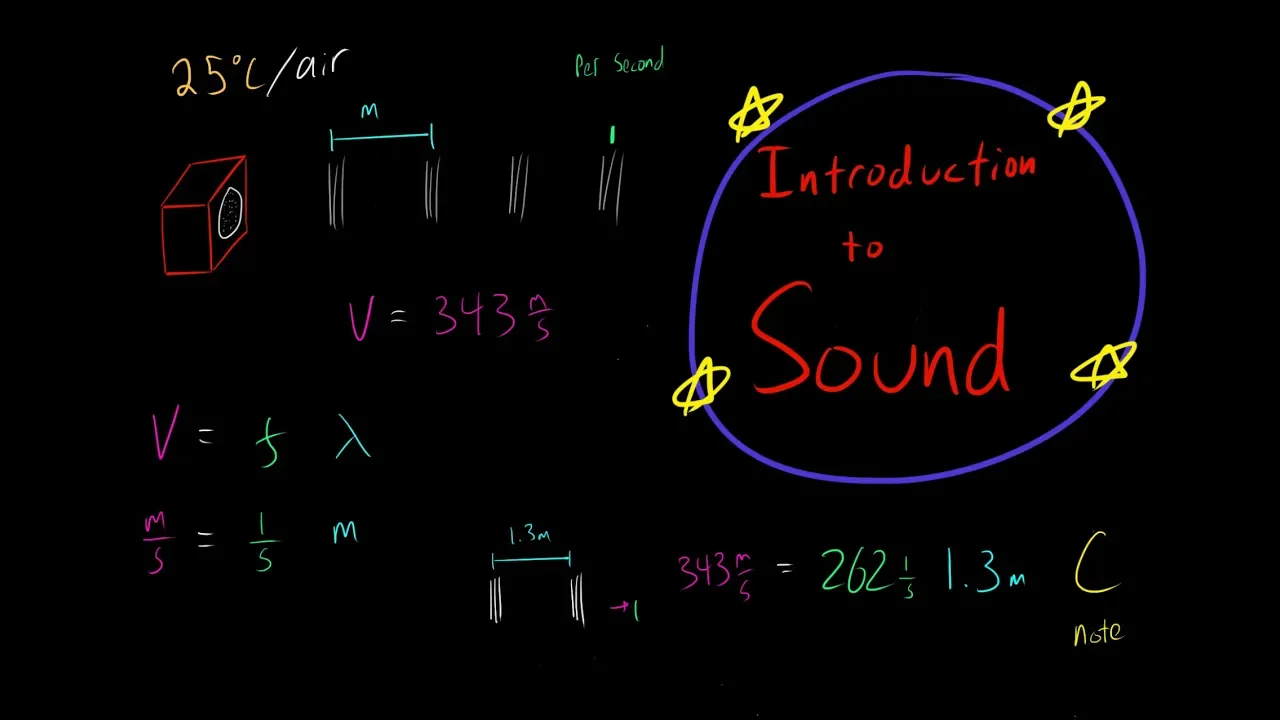 25°C/air
Per Second
m
Introduction
to
Sound
V = 343 m/s
V = f λ
m/s = 1/s m
1.3m
343 m/s = 262 1/s 1.3 m
C
note